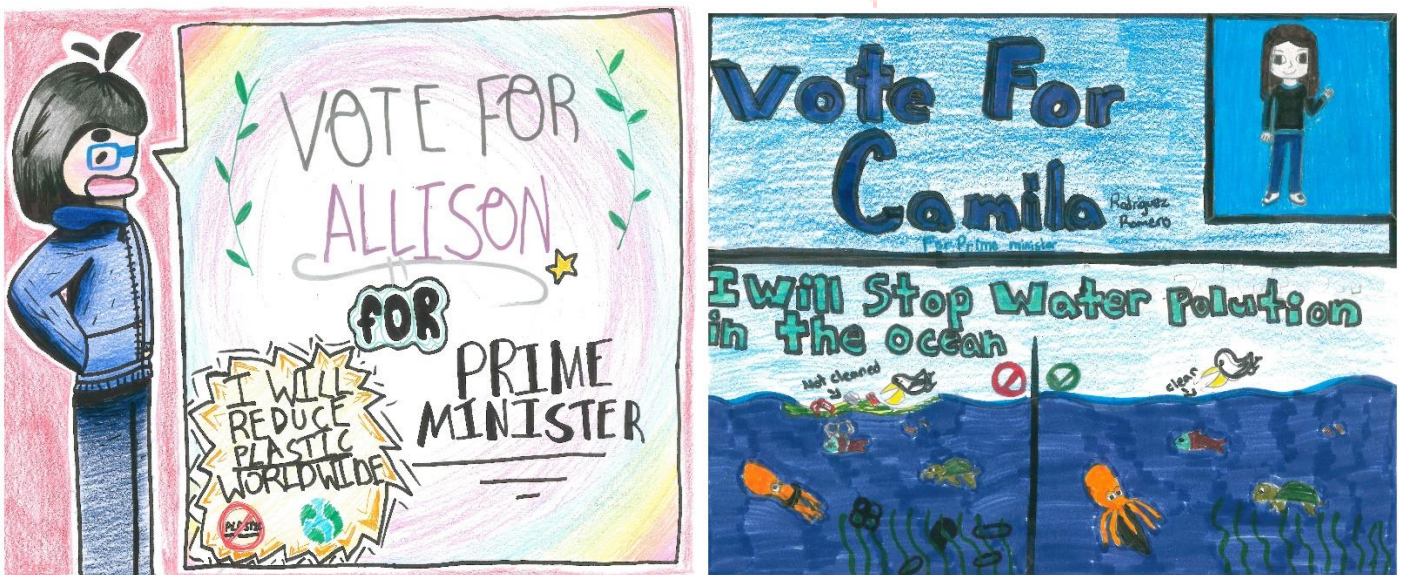 VOTE FOR
ALLISON
FOR
PRIME
MINISTER
I WILL
REDUCE
PLASTIC
WORLDWIDE
PLASTIC
Vote For
Camila
Rodriguez
Romero
For Prime minister
I Will Stop Water Polution
in the ocean
Not cleaned
clean